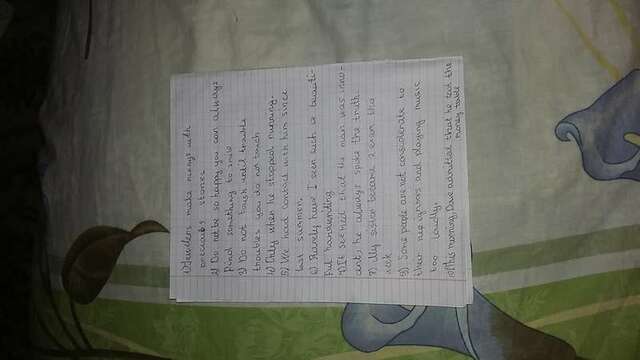 1) Jewelers make rings with
precious stones
2) Do not be so happy you can always
find something to smile
3) Do not touch until trouble
troubles you do not touch
4) Only when he stopped running.
5) We had contact with him since
last summer.
6) Rarely have I seen such a beauti-
ful handwriting
7) It seemed that the man was inno-
cent, he always spoke the truth.
My sister became
9) Some people are not considerate to
their neighbors and playing music
too loudly.
10) This morning, Dave admitted that he took the
money table